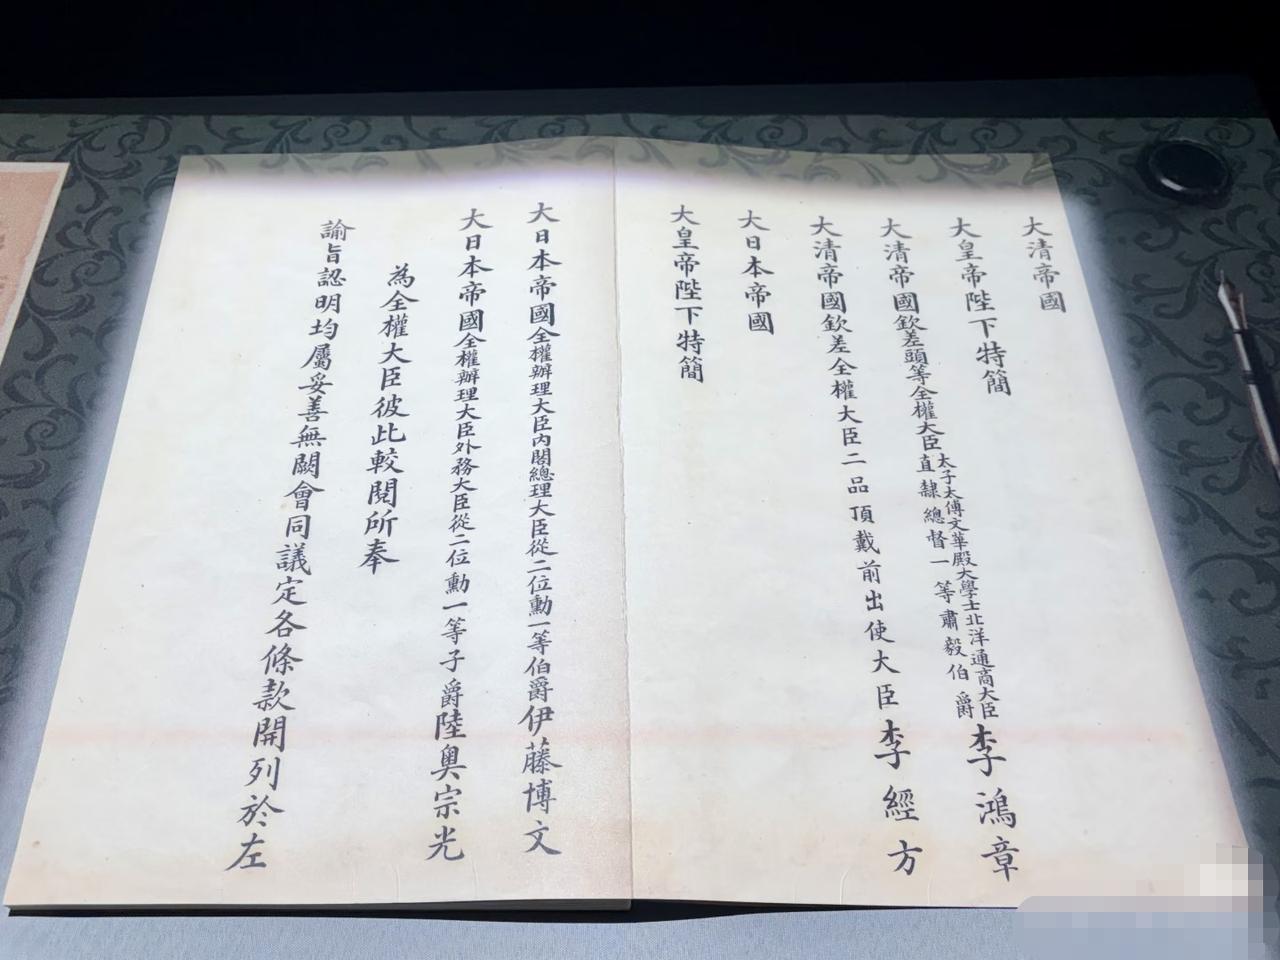 大清帝國
大皇帝陛下特簡
大清帝國欽差頭等全權大臣太子太傅文華殿大學士北洋通商大臣直隸總督一等肅毅伯爵李鴻章
大清帝國欽差全權大臣二品頂戴前出使大臣李經方
大日本帝國
大皇帝陛下特簡
大日本帝國全權辦理大臣內閣總理大臣從二位勳一等伯爵伊藤博文
大日本帝國全權辦理大臣外務大臣從二位勳一等子爵陸奧宗光
為全權大臣彼此較閱所奉
諭旨認明均屬妥善無闕會同議定各條款開列於左